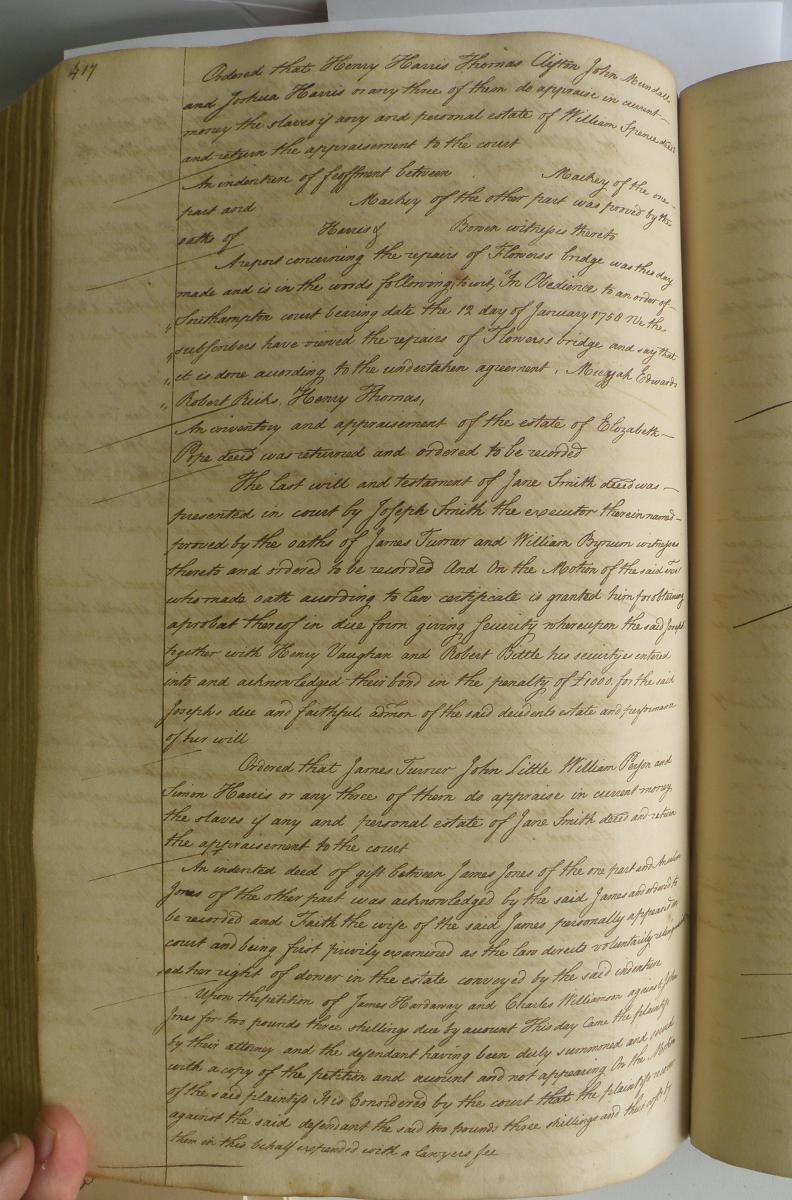 417
Ordered that Henry Harris Thomas Clifton John Mundall
and Joshua Harris or any three of them do appraise in current
money the slaves if any and personal estate of William Spence deced
and return the appraisement to the court
An indenture of feoffment between Mackey of the one
part and Mackey of the other part was proved by the
oaths of Harris & Bowen witnesses thereto
A report concerning the repairs of Flowerss bridge was this day
made and is in the words following, to wit, "In Obedience to an order of
"Southampton court bearing date the 12 day of January 1758 We the
"subscribers have viewed the repairs of Flowerss bridge and say that
"it is done acording to the undertaken agreement, Edwards
"Robert Ricks, Henry Thomas,
An inventory and appraisement of the estate of Elizabeth
Pope deced was returned and ordered to be recorded
The last will and testament of Jane Smith deced was
presented in court by Joseph Smith the executor therein named
proved by the oaths of James Turner and William Bynum witnesses
thereto and ordered to be recorded And On the Motion of the said Exr
who made oath acording to law certificate is granted him for obtaining
a probat thereof in due form giving security whereupon the said Joseph
together with Henry Vaughan and Robert Bittle his securityes entered
into and acknowledged their bond in the penalty of £1000. for the said
Josephs due and faithful admon of the said decedents estate and performance
of her will
Ordered that James Turner John Little William Person and
Simon Harris or any three of them do appraise in current money
the slaves if any and personal estate of Jane Smith deced and return
the appraisement to the court
An indented deed of gift between James Jones of the one part and
Jones of the other part was acknowledged by the said James and ordered to
be recorded and Faith the wife of the said James personally appeared in
court and being first privily examined as the law directs voluntarily relinquish
ed her right of dower in the estate conveyed by the said indenture
Upon the petition of James Hardaway and Charles Williamson against John
Jones for two pounds three shillings due by account This day came the plaintifs
by their attorney and the defendant having been duly summoned and served
with a copy of the petition and account and not appearing On the Motion
of the said plaintifs It is Considered by the court that the plaintifs recover
against the said defendant the said two pounds three shillings and their costs by
them in this behalf expended with a lawyers fee